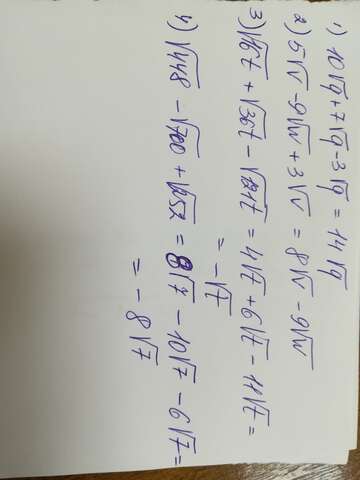 1) 10√q + 7√q - 3√q = 14√q
2) 5√v - 9√w + 3√v = 8√v - 9√w
3) √16z + √36z - √121z = 4√z + 6√z - 11√z =
= -√z
4) √448 - √700 + √252 = 8√7 - 10√7 - 6√7 =
= -8√7